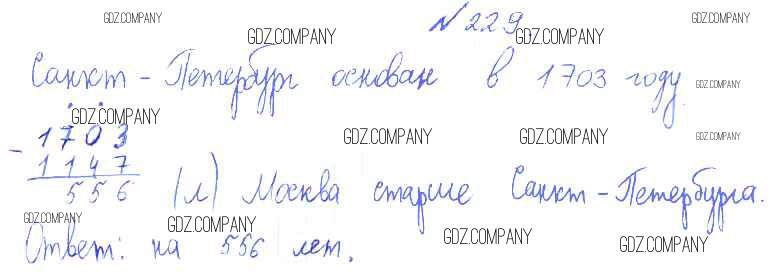 № 229
GDZ.COMPANY GDZ.COMPANY GDZ.COMPANY GDZ.COMPANY
Санкт-Петербург основан в 1703 году.
GDZ.COMPANY
GDZ.COMPANY
- 1703
GDZ.COMPANY GDZ.COMPANY GDZ.COMPANY
1147
556 (л) Москва старше Санкт-Петербурга.
GDZ.COMPANY GDZ.COMPANY
Ответ: на 556 лет.
GDZ.COMPANY GDZ.COMPANY